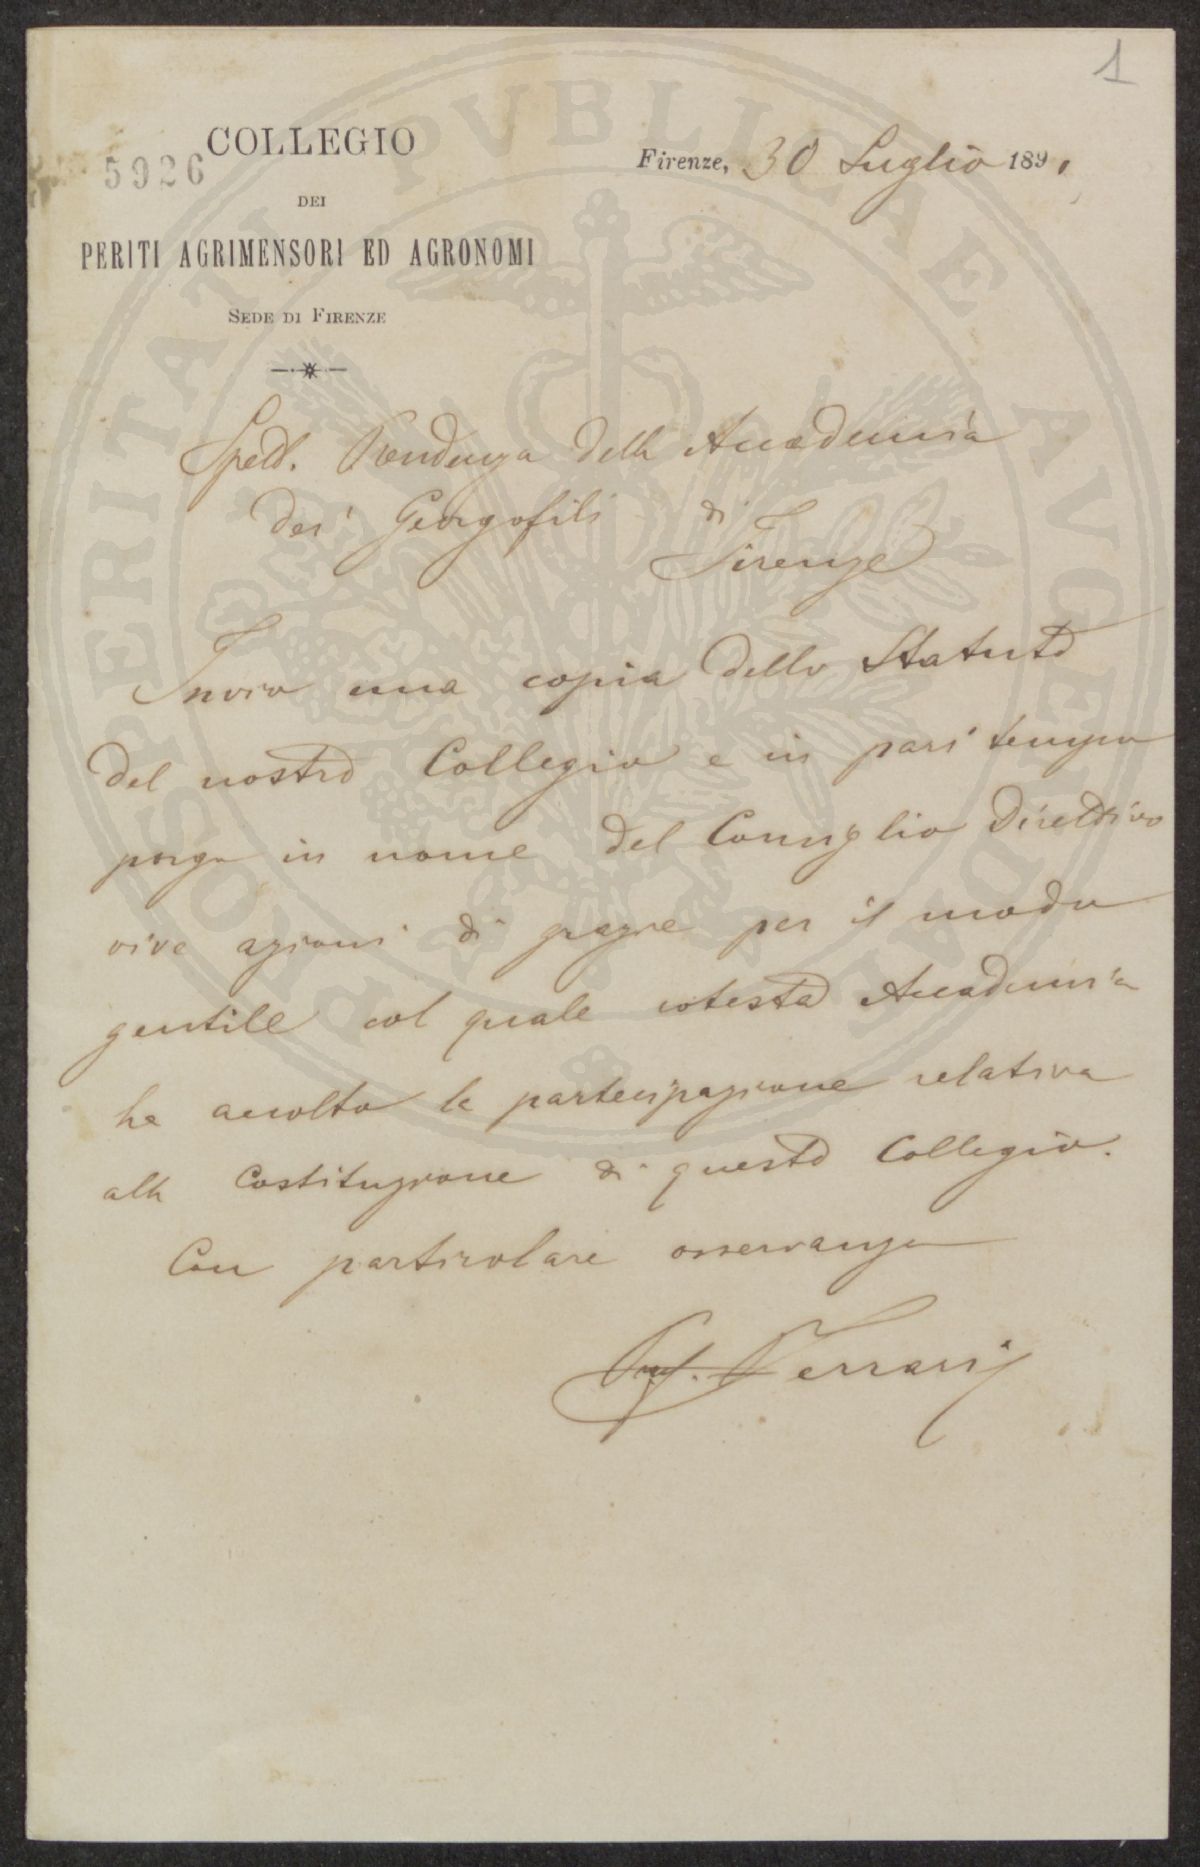 1
5926
COLLEGIO
DEI
PERITI AGRIMENSORI ED AGRONOMI
SEDE DI FIRENZE
Firenze, 30 Luglio 1891
Spett. Presidenza della Accademia
dei Georgofili di
Firenze
Invio una copia dello Statuto
del nostro Collegio e in pari tempo
porgo in nome del Consiglio Direttivo
vive azioni di grazie per il modo
gentile col quale cotesta Accademia
ha accolto la partecipazione relativa
alla Costituzione di questo Collegio.
Con particolare osservanza
Ferrari
PROSPERITATI PVBLICAE AVGENDAE